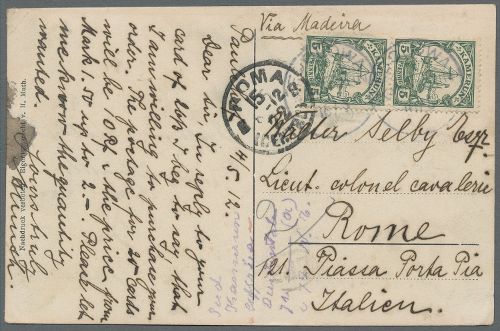 Via Madeira
KAMERUN
5
KAMERUN
5
ROMA
5-12
Walter Selby Esqr.
Lieut. colonel cavalerie
Rome
121. Piassa Porta Pia
Italien.
4/5 12.
Dear Sir, In reply to your
card of I beg to say that
I am willing to purchase your
order. The postage for 20 cards
will be 0R, & the price from
Mark 1.50 up to 2-. Please let
me know the quantity
wanted.
Yours truly
Nachdruck verboten. Eigentum v. R. Muth.
Sud
Kamerun